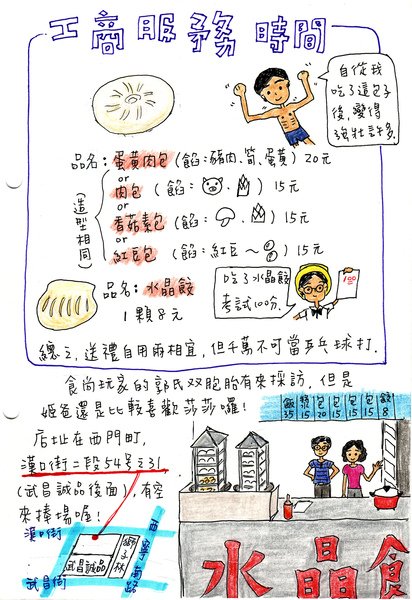 工商服務時間
自從我
吃了這包子
後,變得
強壯許多.
品名:蛋黃肉包(餡:豬肉、筍、蛋黃) 20元
or
肉包(餡: 、 ) 15元
or
香菇素包(餡: 、 ) 15元
or
紅豆包(餡:紅豆~ ) 15元
(造型相同)
品名:水晶餃
1顆8元
吃了水晶餃
考試100分.
100
總之,送禮自用兩相宜,但千萬不可當乒乓球打.
食尚玩家的郭氏双胞胎有來採訪,但是
姬爸還是比較喜歡莎莎囉!
店址在西門町,
漢口街二段54号之31
(武昌誠品後面),有空
來捧場喔!
漢口街
武昌誠品
獅子林
西寧南路
武昌街
35
15
包20
包15
包15
包15
餃8
水晶餃